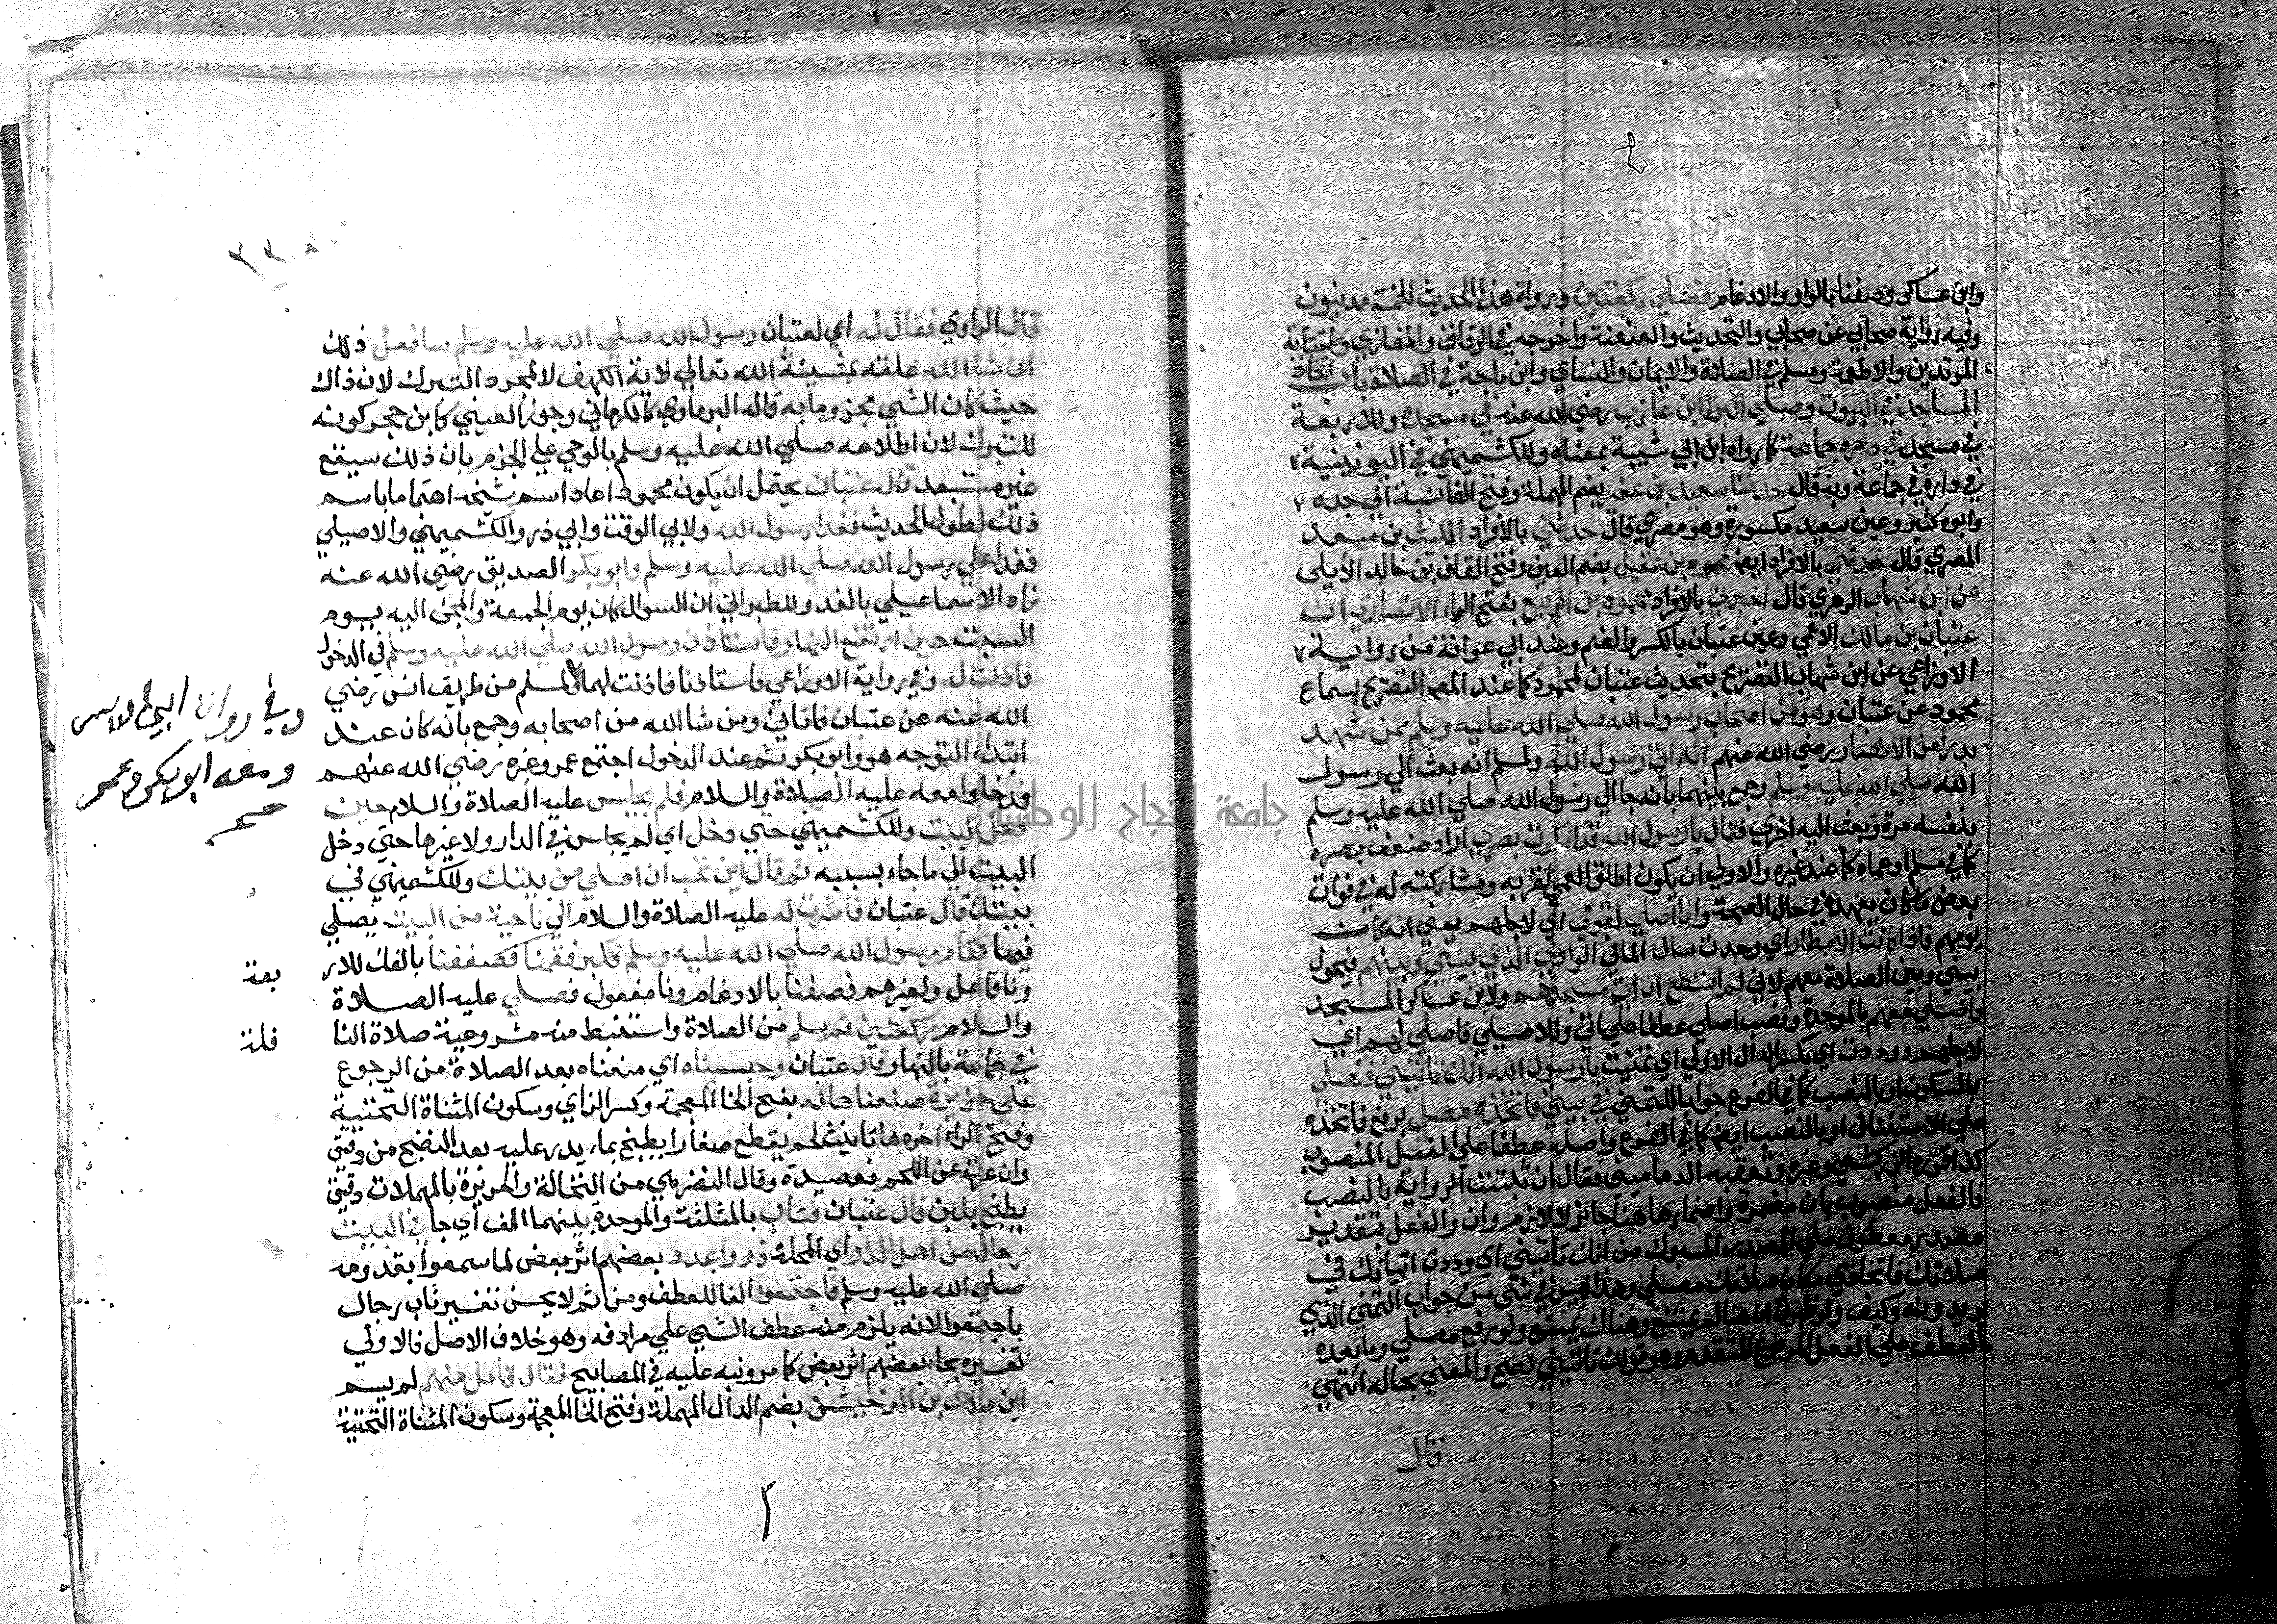 وابن عساكر وصففنا بالواو والادغام فصلي ركعتين ورواة هذا الحديث الخمسة مدنيون
وفيه رواية صحابي عن صحابي والتحديث والعنعنة واخرجه في الرقاق والمغازي واستتابة
المرتدين والاطعمة ومسلم في الصلاة والايمان والنساي وابن ماجة في الصلاة باب اتخاذ
المساجد في البيوت وصلي البرا ابن عازب رضي الله عنه في مسجده وللاربعة
في مسجد في داره جماعة كما رواه ابن ابي شيبة بمعناه وللكشميهني في اليونينية
في داره في جماعة وبه قال حدثنا سعيد بن عفير بضم المهملة وفتح الفا نسبة الي جده
وابوه كثير وعين سعيد مكسورة وهو مصري قال حدثني بالافراد الليث بن سعد
المصري قال حدثني بالافراد ايضا عقيل بضم العين وفتح القاف بن خالد الايلي
عن ابن شهاب الزهري قال اخبرني بالافراد محمود بن الربيع بفتح الراء الانصاري ان
عتبان بن مالك الاعمي وعين عتبان بالكسر والضم وعند ابي عوانة من رواية
الاوزاعي عن ابن شهاب التصريح بتحديث عتبان لمحمود كما عند المصـ التصريح بسماع
محمود عن عتبان وهو من اصحاب رسول الله صلي الله عليه وسلم ممن شهد
بدرا من الانصار رضي الله عنهم انه اتي رسول الله ولمسلم انه بعث الي رسول
الله صلي الله عليه وسلم وجمع بينهما بانه جا الي رسول الله صلي الله عليه وسلم
بنفسه مرة وبعث اليه اخري فقال يا رسول الله قد انكرت بصري اراد ضعف بصره
كما في مسلم او عماه كما عند غيره والاولي ان يكون اطلق العمي لقربه ومشاركته له في فوات
بعض ما كان يعهده في حال الصحة وانا اصلي لقومي اي لاجلهم يعني انه كان
يومهم فاذا كانت الامطار اي وجدت سال الما في الوادي الذي بيني وبينهم فيحول
بيني وبين الصلاة معهم لاني لم استطع ان اتي مسجدهم ولابن عساكر المسجد
فاصلي معهم بالموحدة ونصب اصلي عطفا علي اتي وللاصيلي فاصلي لهم اي
لاجلهم ووددت اي بكسر الدال الاولي اي تمنيت يا رسول الله انك تاتيني فتصلي
بالسكون او بالنصب كما في الفرع جوابا للتمني في بيتي فاتخذه مصلي برفع فاتخذه
علي الاستيناف او بالنصب ايضا كما في الفرع واصله عطفا علي الفعل المنصوب
كذا قرره الزركشي وغيره وتعقبه الدماميني فقال ان ثبتت الرواية بالنصب
فالفعل منصوب بان مضمرة واضمارها هنا جائز لا لازم وان والفعل بتقدير
مصدر معطوف علي المصدر المسبوك من انك تاتيني اي وددت اتيانك في
صلاتك فاتخاذي مكان صلاتك مصلي وهذا ليس في شي من جواب التمني الذي
بالعطف علي الفعل المرفوع المتقدم وهو قولك تاتيني لصح والمعني بحاله انتهي
قال
قال الراوي فقال له اي لعتبان رسول الله صلي الله عليه وسلم سافعل ذلك
ان شا الله علقه بمشيئة الله تعالي لاية الكهف لا لمجرد التبرك لان ذاك
حيث كان الشي مجزوما به قاله البرماوي كالكرماني وجوز العيني كابن حجر كونه
للتبرك لان اطلاعه صلي الله عليه وسلم بالوحي علي الجزم بان ذلك سيقع
غير مستبعد قال عتبان يحتمل ان يكون محمود اعاد اسم شيخه اهتماما باسم
ذلك لطول الحديث فغدا رسول الله ولابي الوقت وابي ذر والكشميهني والاصيلي
فغدا علي رسول الله صلي الله عليه وسلم وابو بكر الصديق رضي الله عنه
زاد الاسماعيلي بالغد وللطبراني ان السوال كان يوم الجمعة والمجئ اليه يوم
السبت حين ارتفع النهار فاستاذن رسول الله صلي الله عليه وسلم في الدخول
فاذنت له وفي رواية الاوزاعي فاستاذنا فاذنت لهما ولمسلم من طريق انس رضي
الله عنه عن عتبان فاتاني ومن شا الله من اصحابه وجمع بانه كان عند
ابتداء التوجه هو وابو بكر ثم عند الدخول اجتمع عمر وغيره رضي الله عنهم
فدخلوا معه عليه الصلاة والسلام فلم يجلس عليه الصلاة والسلام حين
دخل البيت وللكشميهني حتي دخل اي لم يجلس في الدار ولا غيرها حتي دخل
البيت الي ما جاء بسببه ثم قال اين تحب ان اصلي من بيتك وللكشميهني في
بيتك قال عتبان فاشرت له عليه الصلاة والسلام الي ناحية من البيت يصلي
فيها فقام رسول الله صلي الله عليه وسلم فكبر فقمنا فصففنا بالفك للار
بعة
ونا فاعل ولغيرهم فصفنا بالادغام ونا مفعول فصلي عليه الصلاة
والسلام ركعتين ثم سلم من الصلاة واستنبط منه مشروعية صلاة النا
فلة
في جماعة بالنهار قال عتبان وحبسناه اي منعناه بعد الصلاة من الرجوع
علي خزيرة صنعناها له بفتح الخا المعجمة وكسر الزاي وسكون المثناة التحتية
وفتح الراء اخره ها تانيث لحم يقطع صغارا يطبخ بماء يذر عليه بعد النضج من دقيق
وان عريت عن اللحم فعصيدة وقال النضر هي من النخالة والحريرة بالمهملات دقيق
يطبخ بلبن قال عتبان فثاب بالمثلثة والموحدة بينهما الف اي جا في البيت
رجال من اهل الدار اي المحلة ذوو اعدد بعضهم اثر بعض لما سمعوا بقدومه
صلي الله عليه وسلم فاجتمعوا الفا للعطف ومن ثم لا يحسن تفسير ثاب رجال
باجتمعوا لانه يلزم منه عطف الشي علي مرادفه وهو خلاف الاصل فالاولي
تفسيره بجاء بعضهم اثر بعض كما مر ونبه عليه في المصابيح فقال قائل منهم لم يسم
اين مالك بن الدخيشن بضم الدال المهملة وفتح الخا المعجمة وسكون المثناة التحتية
ومعه ابو بكر وعمر
صح
جامعة النجاح الوطنية